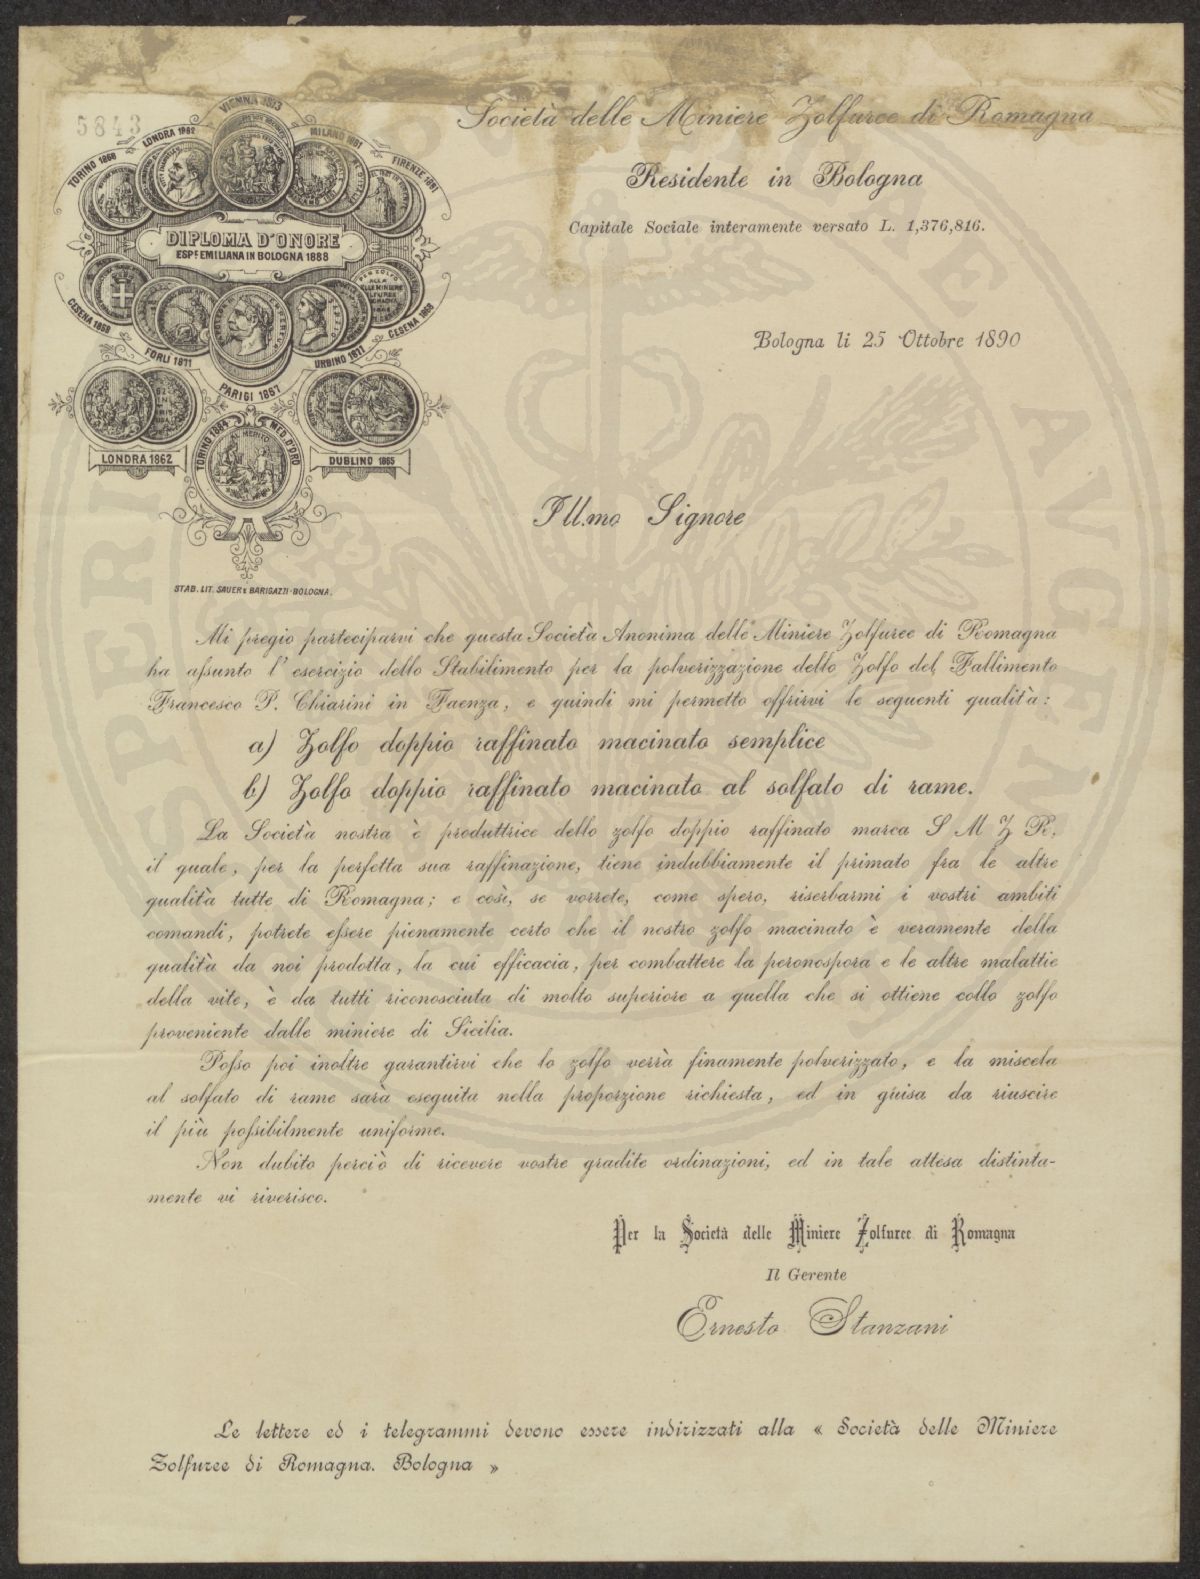 5843
VIENNA 1873
LONDRA 1862
MILANO 1881
TORINO 1868
FIRENZE 1861
DIPLOMA D'ONORE
ESP.E EMILIANA IN BOLOGNA 1888
CESENA 1868
CESENA 1868
FORLI 1871
URBINO 1877
PARIGI 1867
TORINO 1884
MED. D'ORO
AL MERITO
LONDRA 1862
DUBLINO 1865
STAB. LIT. SAUER E BARIGAZZI-BOLOGNA.
Società delle Miniere Zolfuree di Romagna
Residente in Bologna
Capitale Sociale interamente versato L. 1,376,816.
Bologna li 25 Ottobre 1890
Ill.mo Signore
Mi pregio parteciparvi che questa Società Anonima delle Miniere Zolfuree di Romagna
ha assunto l'esercizio dello Stabilimento per la polverizzazione dello Zolfo del Fallimento
Francesco P. Chiarini in Faenza, e quindi mi permetto offrirvi le seguenti qualità:
a) Zolfo doppio raffinato macinato semplice
b) Zolfo doppio raffinato macinato al solfato di rame.
La Società nostra è produttrice dello zolfo doppio raffinato marca S M Z R,
il quale, per la perfetta sua raffinazione, tiene indubbiamente il primato fra le altre
qualità tutte di Romagna; e così, se vorrete, come spero, riserbarmi i vostri ambiti
comandi, potrete essere pienamente certo che il nostro zolfo macinato è veramente della
qualità da noi prodotta, la cui efficacia, per combattere la peronospora e le altre malattie
della vite, è da tutti riconosciuta di molto superiore a quella che si ottiene collo zolfo
proveniente dalle miniere di Sicilia.
Posso poi inoltre garantirvi che lo zolfo verrà finamente polverizzato, e la miscela
al solfato di rame sarà eseguita nella proporzione richiesta, ed in guisa da riuscire
il più possibilmente uniforme.
Non dubito perciò di ricevere vostre gradite ordinazioni, ed in tale attesa distinta-
mente vi riverisco.
Per la Società delle Miniere Zolfuree di Romagna
Il Gerente
Ernesto Stanzani
Le lettere ed i telegrammi devono essere indirizzati alla « Società delle Miniere
Zolfuree di Romagna. Bologna »